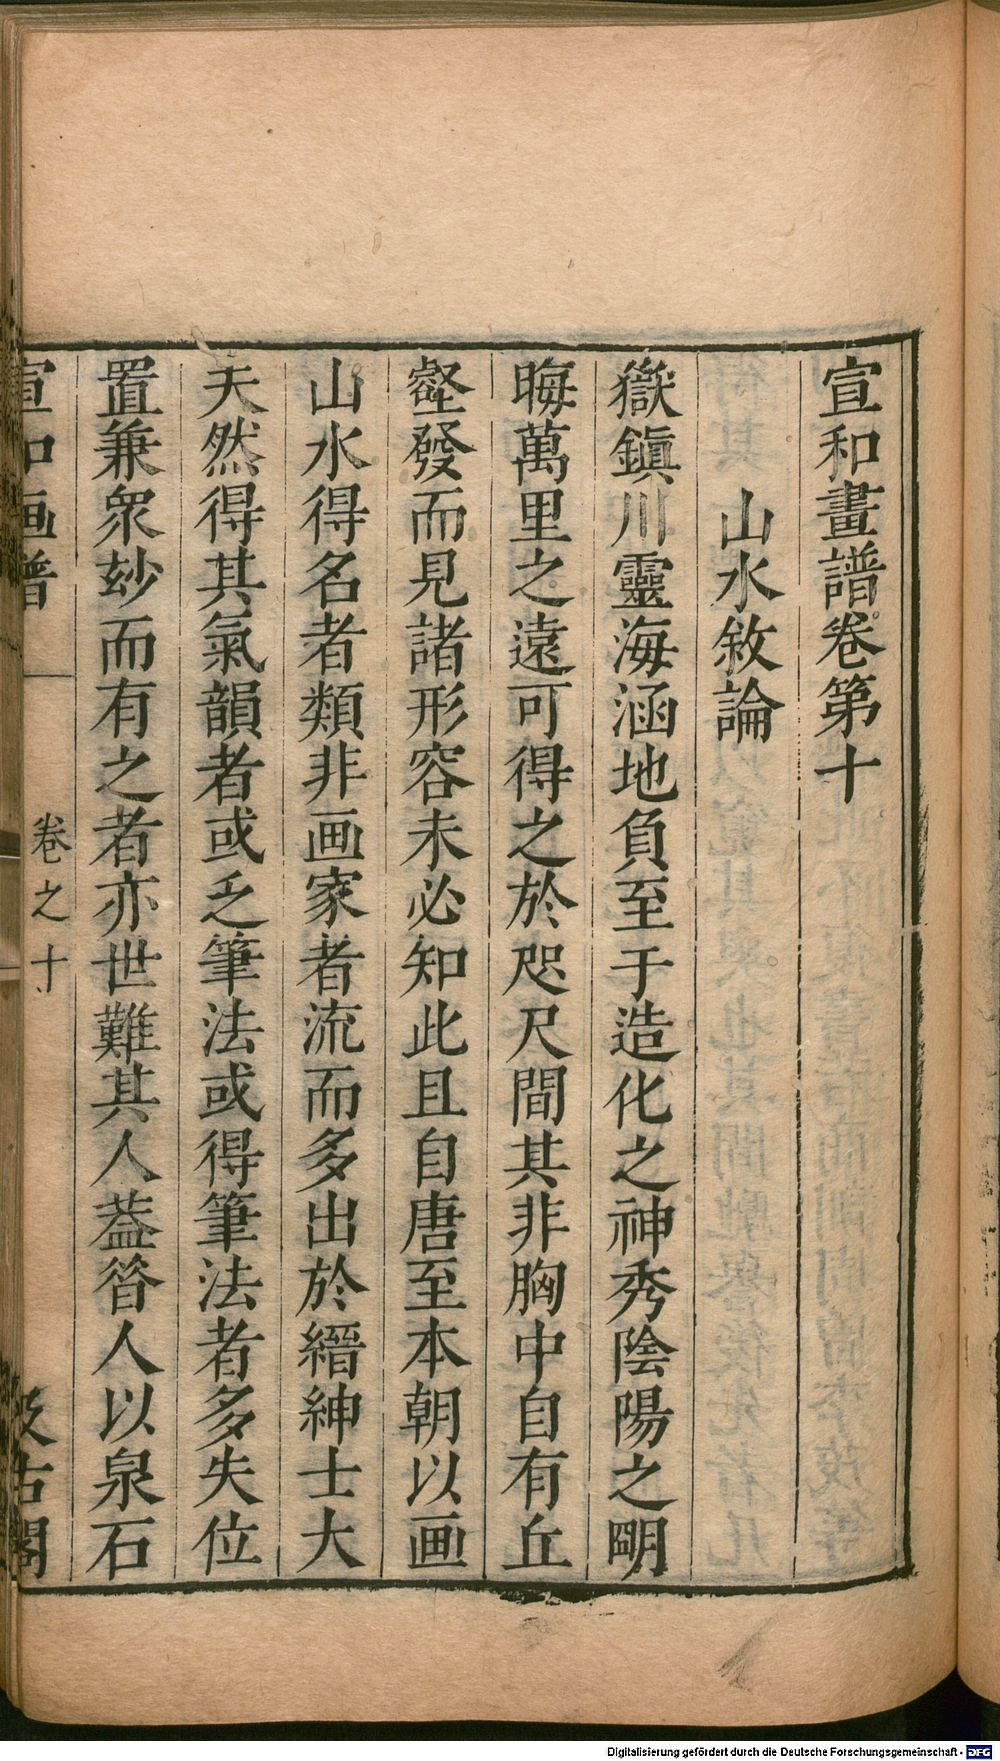 宣和畫譜卷第十
山水敘論
嶽鎭川靈海涵地負至于造化之神秀陰陽之明
晦萬里之遠可得之於咫尺間其非胸中自有丘
壑發而見諸形容未必知此且自唐至本朝以画
山水得名者類非画家者流而多出於縉紳士大
夫然得其氣韻者或乏筆法或得筆法者多失位
置兼衆玅而有之者亦世難其人葢昝人以泉石
宣和画譜
卷之十
汲古閣
Digitalisierung gefördert durch die Deutsche Forschungsgemeinschaft - DFG